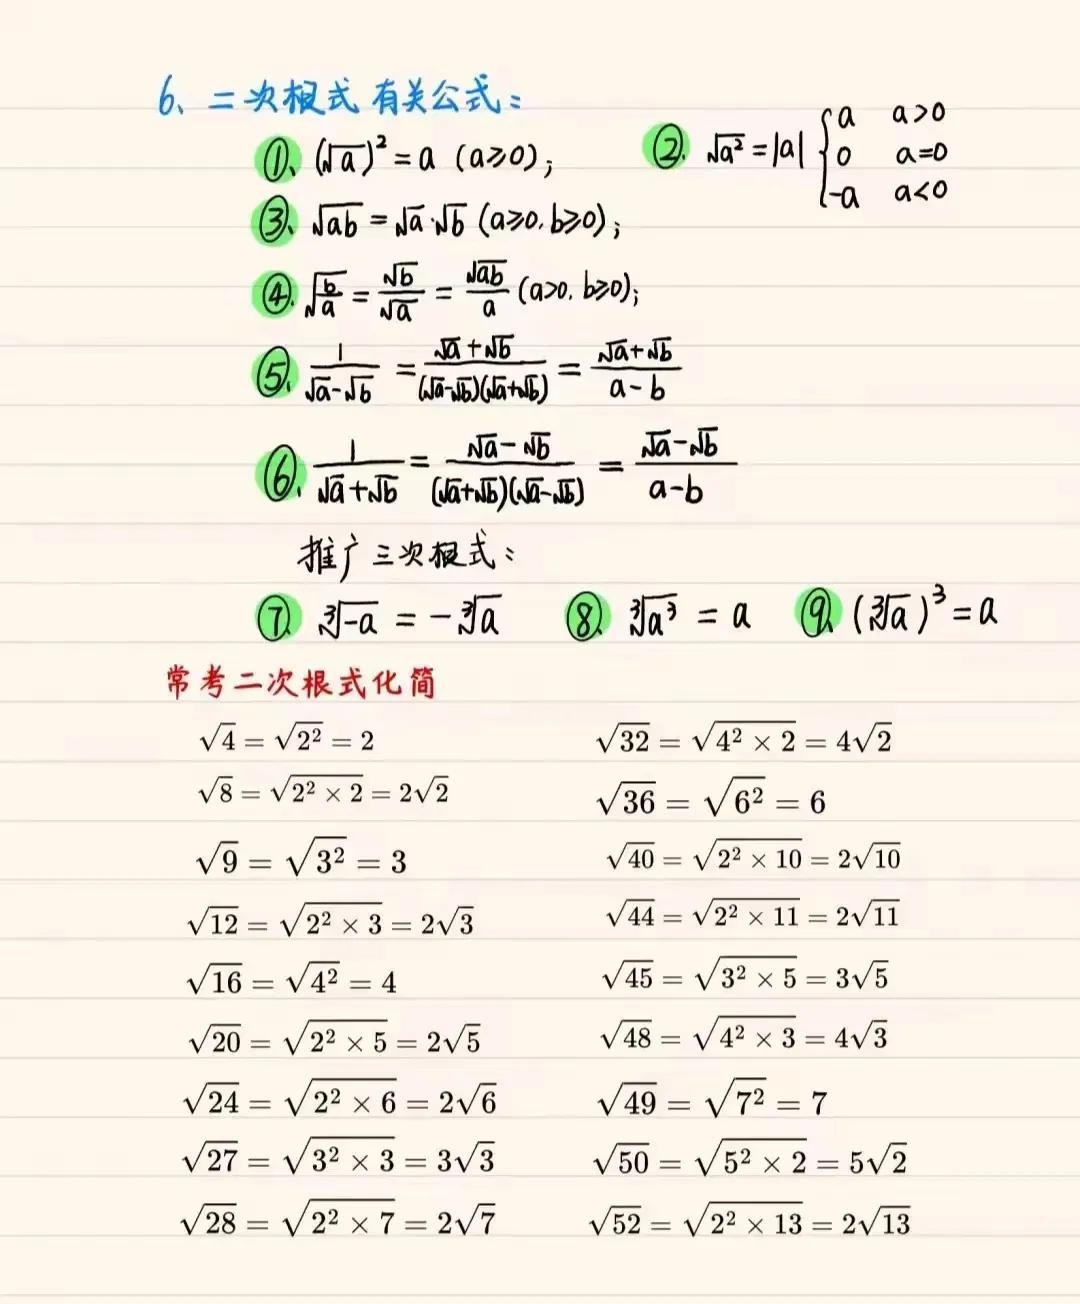 6、二次根式有关公式：
①、(√a)² = a (a≥0)； ②、√a² = |a| { a a>0
0 a=0
-a a<0
③、√ab = √a·√b (a≥0, b≥0)；
④、√(b/a) = √b/√a = √ab/a (a>0, b≥0)；
⑤、1/(√a-√b) = (√a+√b)/((√a-√b)(√a+√b)) = (√a+√b)/(a-b)
⑥、1/(√a+√b) = (√a-√b)/((√a+√b)(√a-√b)) = (√a-√b)/(a-b)
推广三次根式：
⑦、∛-a = -∛a ⑧、∛a³ = a ⑨、(∛a)³ = a
常考二次根式化简
√4 = √2² = 2
√8 = √(2² × 2) = 2√2
√9 = √3² = 3
√12 = √(2² × 3) = 2√3
√16 = √4² = 4
√20 = √(2² × 5) = 2√5
√24 = √(2² × 6) = 2√6
√27 = √(3² × 3) = 3√3
√28 = √(2² × 7) = 2√7
√32 = √(4² × 2) = 4√2
√36 = √6² = 6
√40 = √(2² × 10) = 2√10
√44 = √(2² × 11) = 2√11
√45 = √(3² × 5) = 3√5
√48 = √(4² × 3) = 4√3
√49 = √7² = 7
√50 = √(5² × 2) = 5√2
√52 = √(2² × 13) = 2√13